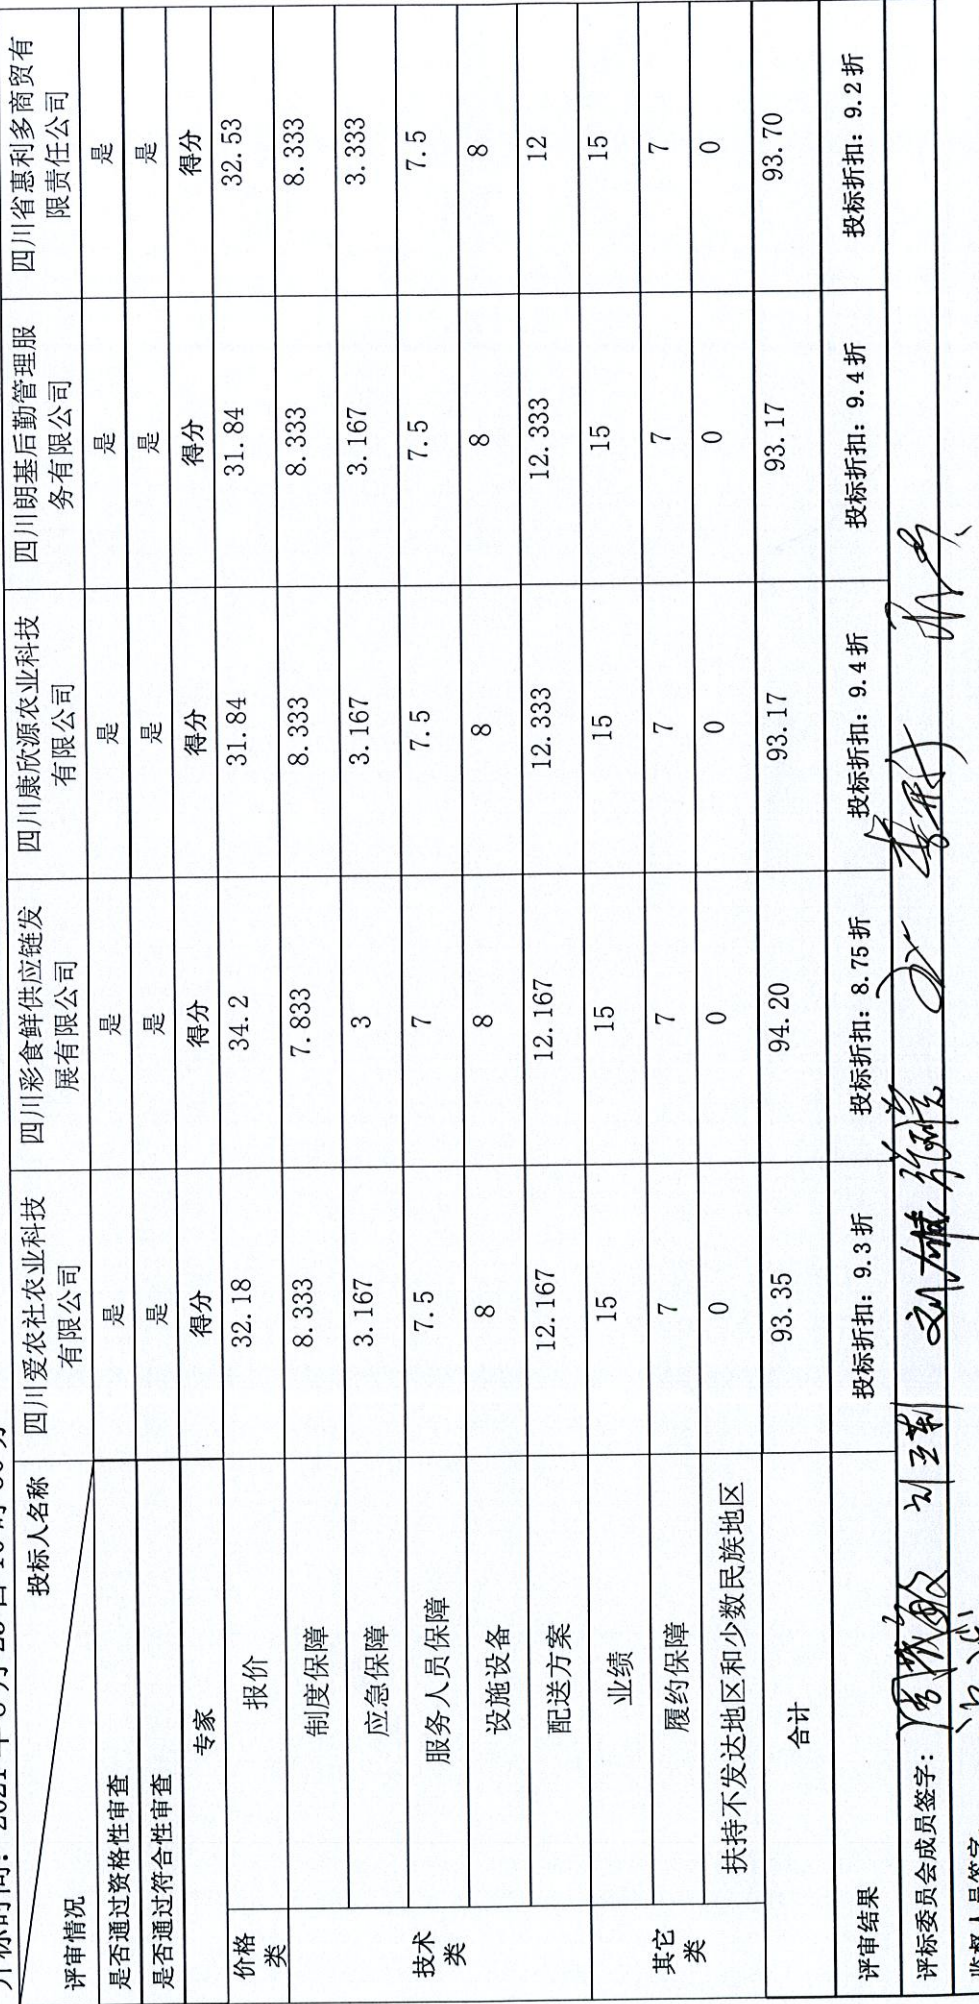 评审情况 投标人名称 四川爱农社农业科技有限公司 四川彩食鲜供应链发展有限公司 四川康欣源农业科技有限公司 四川朗基后勤管理服务有限公司 四川省惠利多商贸有限责任公司
是否通过资格性审查 是 是 是 是 是
是否通过符合性审查 是 是 是 是 是
专家 得分 得分 得分 得分 得分
价格类 报价 32.18 34.2 31.84 31.84 32.53
技术类 制度保障 8.333 7.833 8.333 8.333 8.333
应急保障 3.167 3 3.167 3.167 3.333
服务人员保障 7.5 7 7.5 7.5 7.5
设施设备 8 8 8 8 8
配送方案 12.167 12.167 12.333 12.333 12
其它类 业绩 15 15 15 15 15
履约保障 7 7 7 7 7
扶持不发达地区和少数民族地区 0 0 0 0 0
合计 93.35 94.20 93.17 93.17 93.70
评审结果 投标折扣：9.3折 投标折扣：8.75折 投标折扣：9.4折 投标折扣：9.4折 投标折扣：9.2折
评标委员会成员签字：